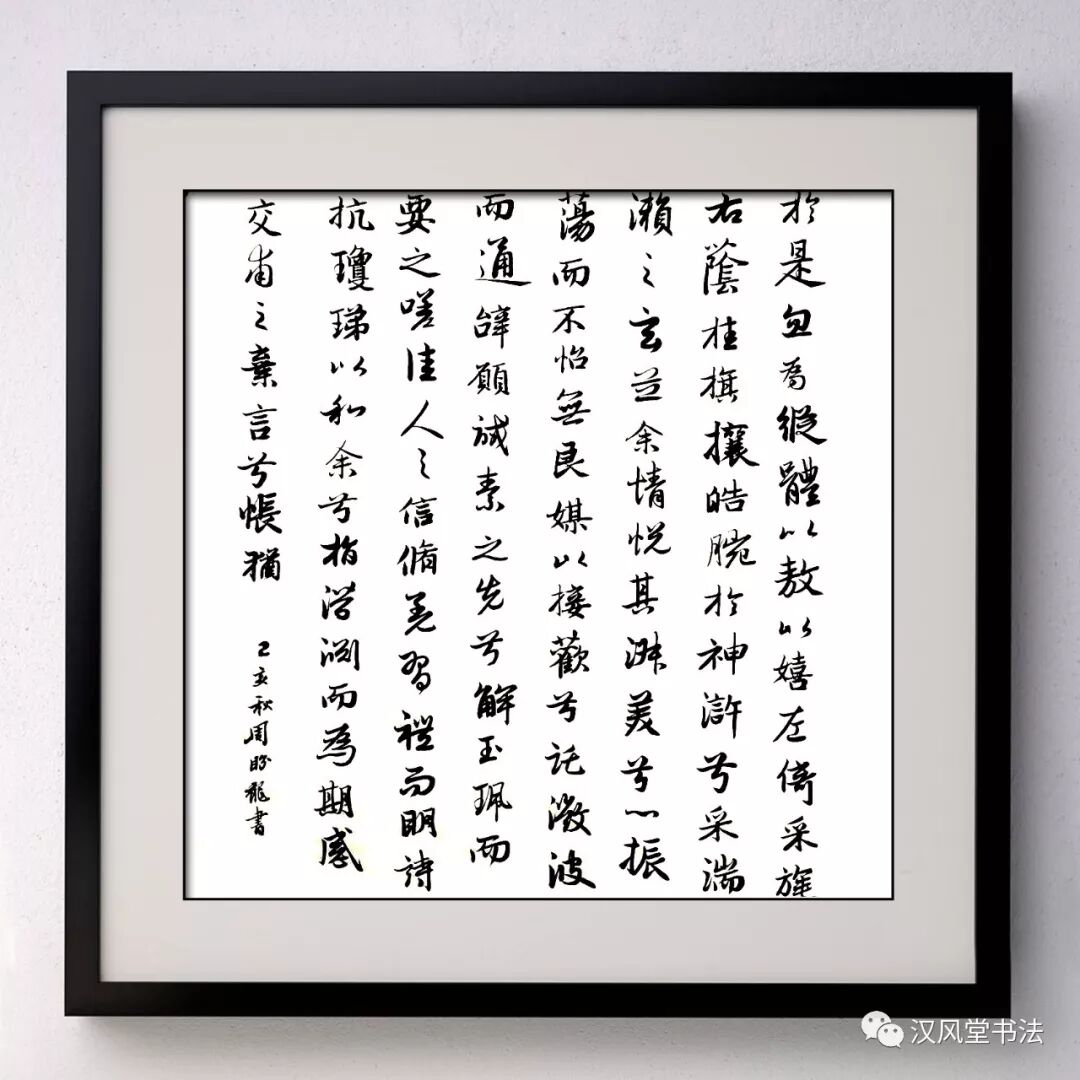 於是忽焉縱體以敖以嬉左倚采旄
右蔭桂旗攘皓腕於神滸兮采湍
瀨之玄芝余情悅其淑美兮心振
蕩而不怡無良媒以接歡兮託微波
而通辭願誠素之先兮解玉珮而
要之嗟佳人之信脩羌習禮而明詩
抗瓊珶以和余兮指潛淵而為期感
交甫之棄言兮悵猶
己亥秋周盼龍書
汉风堂书法